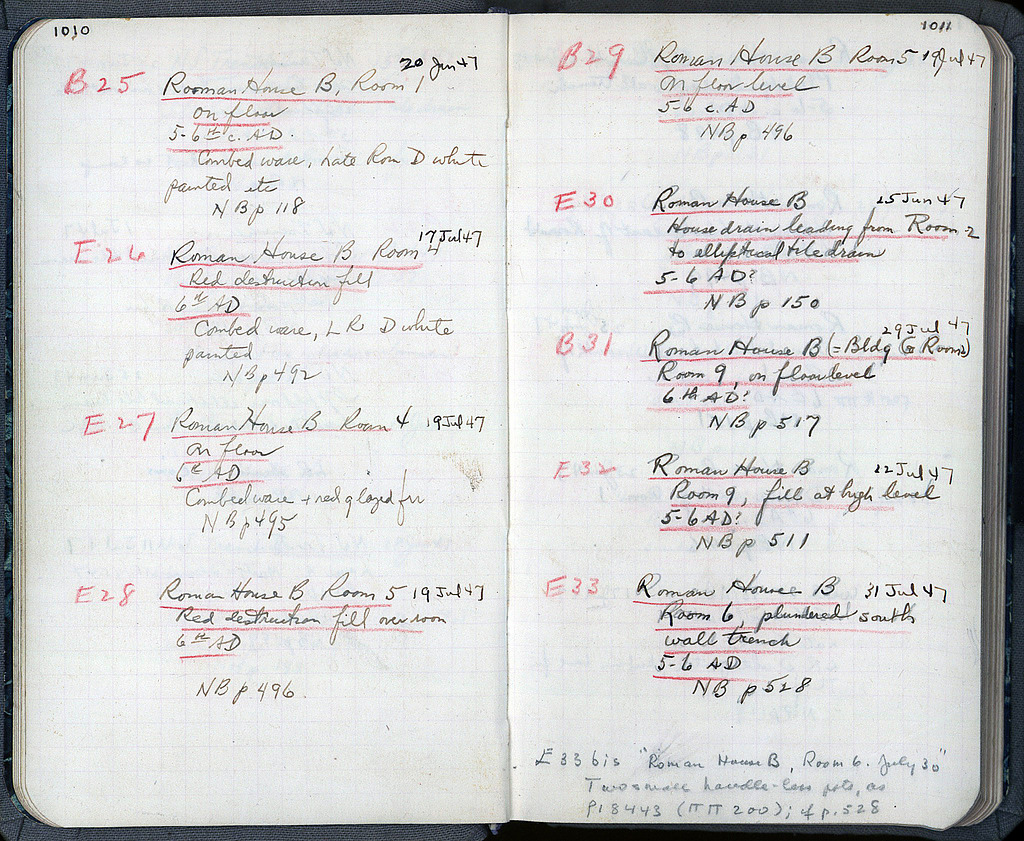 1010
20 Jun 47
B25 Rooman House B, Room 1
on floor
5-6th c. AD.
Combed ware, Late Rom D white
painted etc
NB p 118
17 Jul 47
E26 Roman House B, Room 4
Red destruction fill
6th AD
Combed ware, L R D white
painted
NB p 492
E27 Roman House B Room 4 19 Jul 47
on floor
6th AD
Combed ware + red glazed
NB p 495
E28 Roman House B Room 5 19 Jul 47
Red destruction fill over room
6th AD
NB p 496.
1011
B29 Roman House B Room 5 19 Jul 47
on floor level
5-6 c. AD
NB p 496
E30 Roman House B 25 Jun 47
House drain leading from Room 2
to elliptical tile drain
5-6 AD?
NB p 150
29 Jul 47
B31 Roman House B (= Bldg G Room 2)
Room 9, on floor level
6th AD?
NB p 517
E32 Roman House B 22 Jul 47
Room 9, fill at high level
5-6 AD?
NB p 511
E33 Roman House B 31 Jul 47
Room 6, plundered south
wall trench
5-6 AD
NB p 528
E 33 bis "Roman House B, Room 6. July 30"
Two small handle-less pots, as
P18443 (ΠΠ 200); cf p. 528